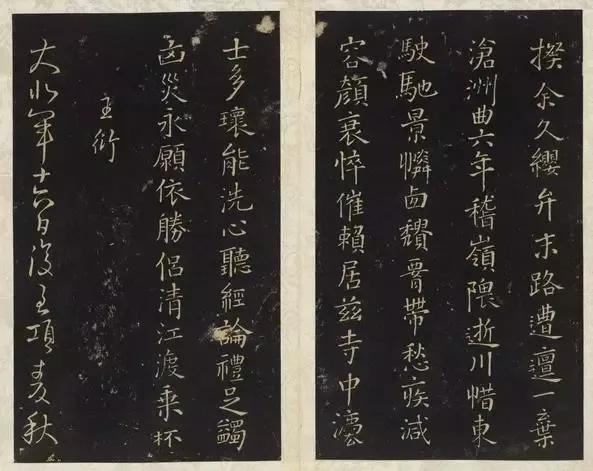 揆余久纓弁末路遭邅一棄
滄洲曲六年稽嶺隈逝川惜東
駛馳景憐西頹脣帶愁疾減
容顏衰悴催賴居茲寺中灋
士多瓌能洗心聽經論禮足蠲
凶災永願依勝侶清江渡乘杯
王衍
十六日